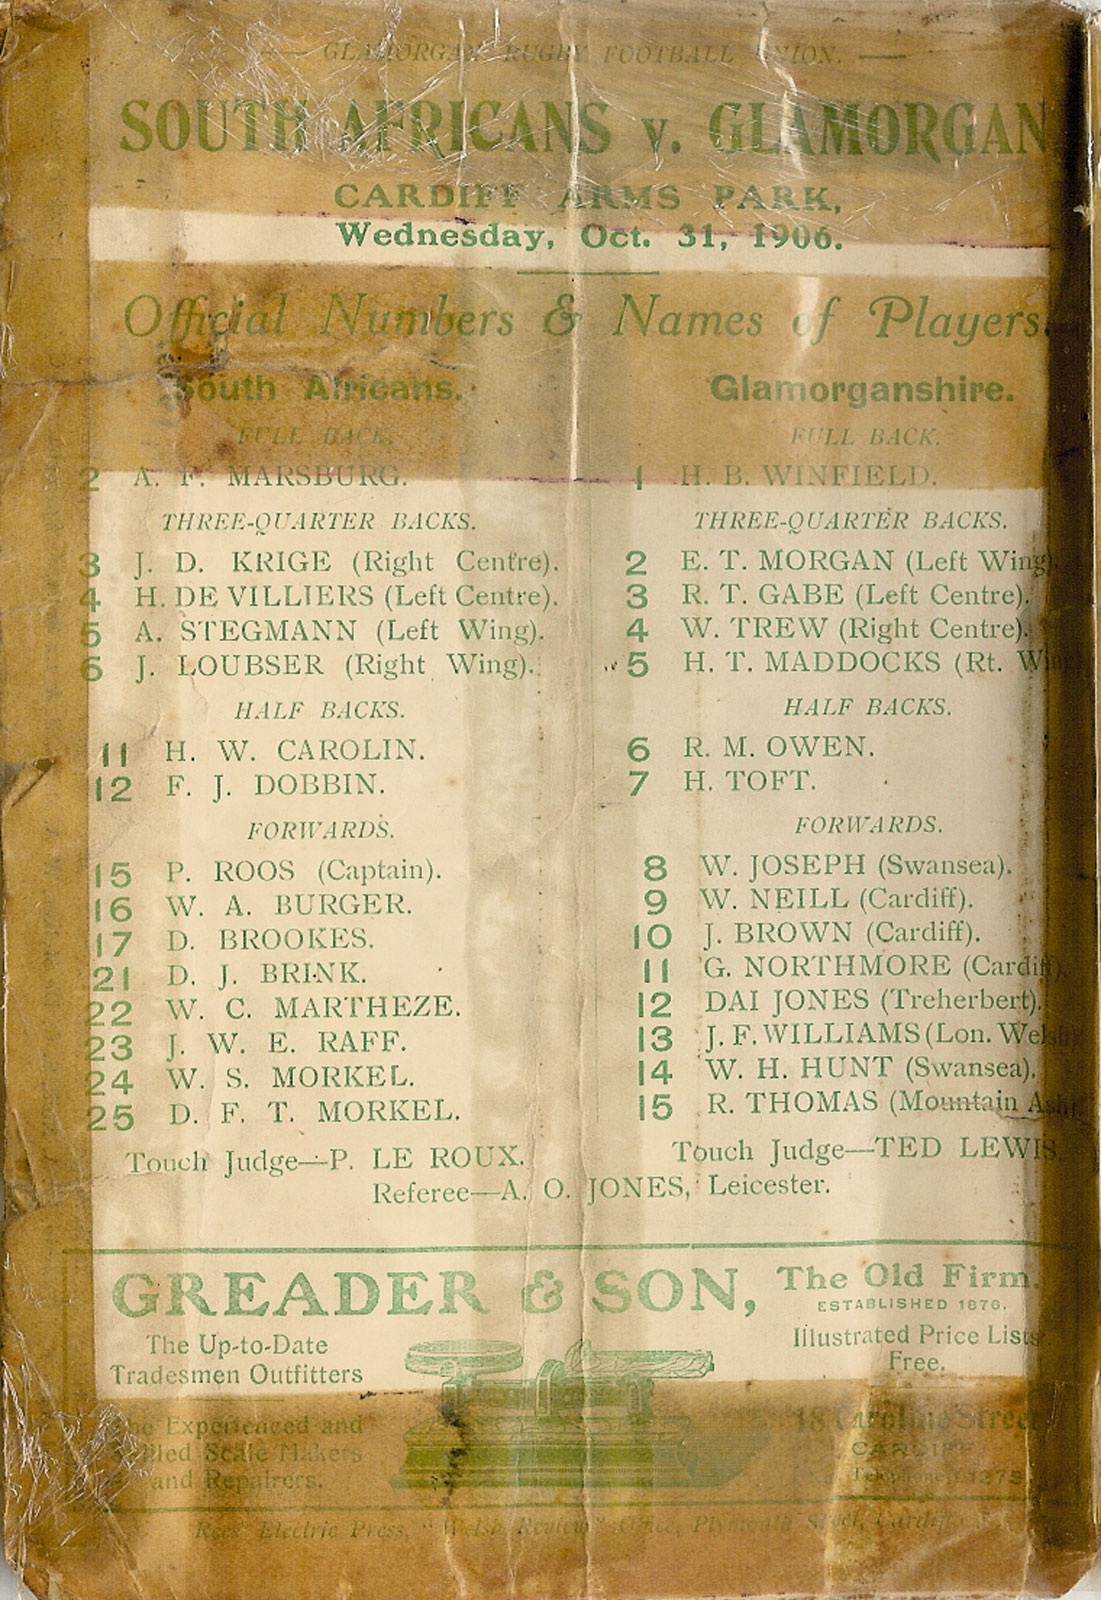 GLAMORGAN RUGBY FOOTBALL UNION.
SOUTH AFRICANS v. GLAMORGAN
CARDIFF ARMS PARK,
Wednesday, Oct. 31, 1906.
Official Numbers & Names of Players.
South Africans.
FULL BACK.
2 A. F. MARSBURG.
THREE-QUARTER BACKS.
3 J. D. KRIGE (Right Centre).
4 H. DE VILLIERS (Left Centre).
5 A. STEGMANN (Left Wing).
6 J. LOUBSER (Right Wing).
HALF BACKS.
11 H. W. CAROLIN.
12 F. J. DOBBIN.
FORWARDS.
15 P. ROOS (Captain).
16 W. A. BURGER.
17 D. BROOKES.
21 D. J. BRINK.
22 W. C. MARTHEZE.
23 J. W. E. RAFF.
24 W. S. MORKEL.
25 D. F. T. MORKEL.
Touch Judge—P. LE ROUX.
Glamorganshire.
FULL BACK.
1 H. B. WINFIELD.
THREE-QUARTER BACKS.
2 E. T. MORGAN (Left Wing)
3 R. T. GABE (Left Centre).
4 W. TREW (Right Centre).
5 H. T. MADDOCKS (Rt. Win
HALF BACKS.
6 R. M. OWEN.
7 H. TOFT.
FORWARDS.
8 W. JOSEPH (Swansea).
9 W. NEILL (Cardiff).
10 J. BROWN (Cardiff).
11 G. NORTHMORE (Cardiff).
12 DAI JONES (Treherbert).
13 J. F. WILLIAMS (Lon. Welsh)
14 W. H. HUNT (Swansea).
15 R. THOMAS (Mountain Ash).
Touch Judge—TED LEWIS.
Referee—A. O. JONES, Leicester.
GREADER & SON,
The Up-to-Date
Tradesmen Outfitters
The Experienced and
Skilled Scale Makers
and Repairers.
The Old Firm.
ESTABLISHED 1876.
Illustrated Price Lists
Free.
18 Caroline Street
CARDIFF
Telephone 01275.
Rees' Electric Press, "Welsh Review" Office, Plymouth Street, Cardiff.